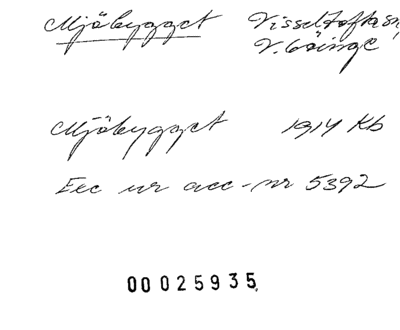 Mjöbygget Visseltofta sn,
V. Göinge
Mjöbygget 1914 Kb
Exc ur acc-nr 5392
00025935